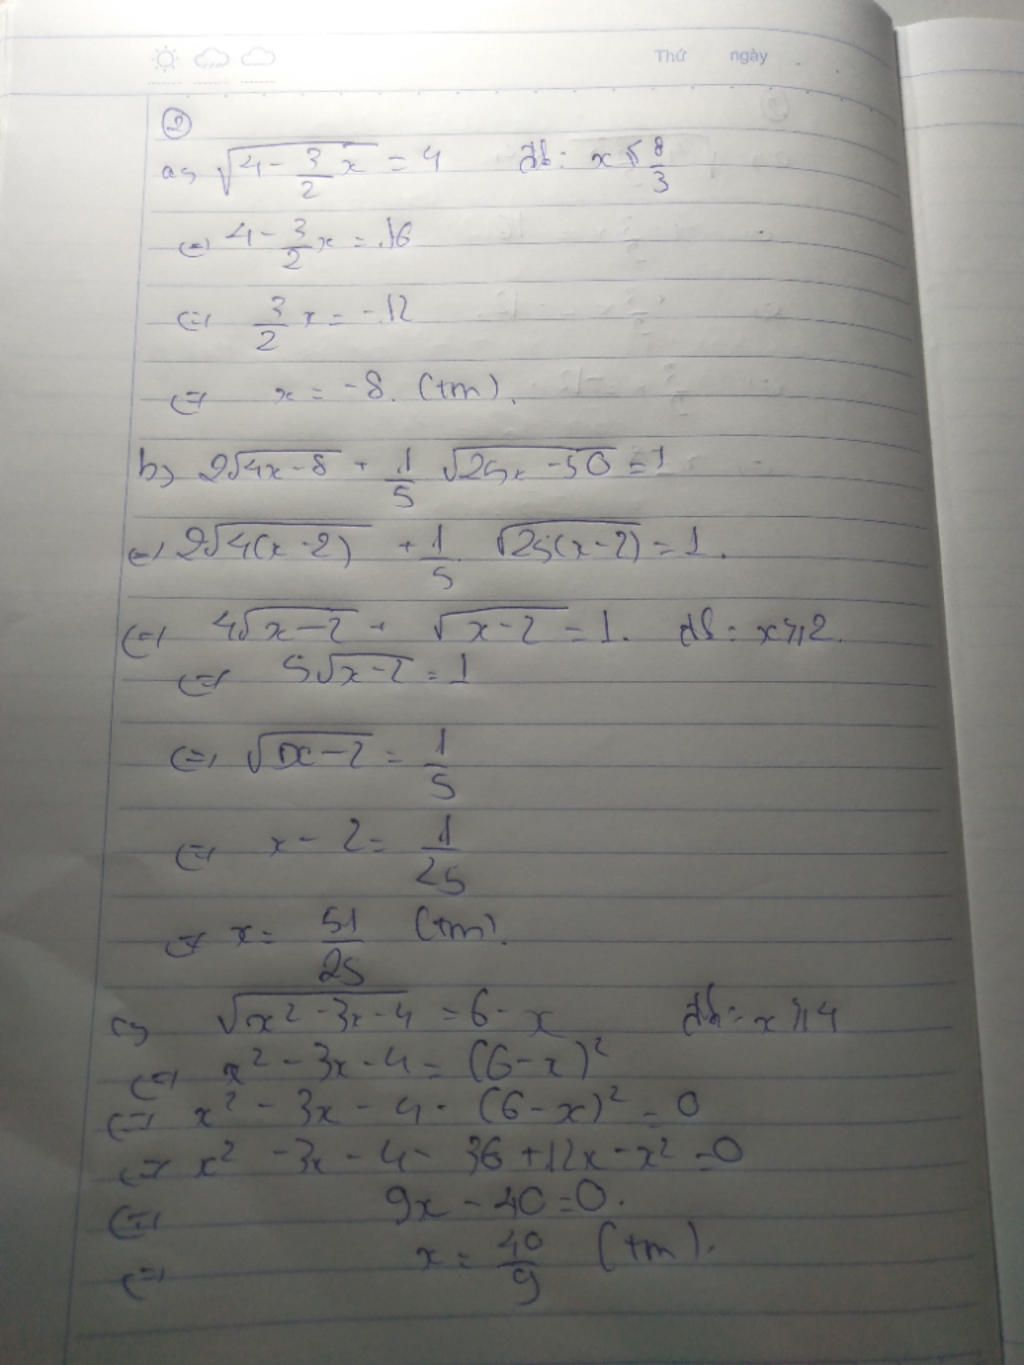 Thứ ngày
②
a, √(4 - 3/2 x) = 4 đk: x ≤ 8/3
(=) 4 - 3/2 x = 16
(=) 3/2 x = -12
(=) x = -8. (tm).
b, 2√(4x - 8) + 1/5 √(25x - 50) = 1
(=) 2√(4(x - 2)) + 1/5 . √(25(x - 2)) = 1.
(=) 4√(x - 2) + √(x - 2) = 1. đk: x ≥ 2.
(=) 5√(x - 2) = 1
(=) √(x - 2) = 1/5
(=) x - 2 = 1/25
(=) x = 51/25 (tm).
c, √(x² - 3x - 4) = 6 - x đk: x ≥ 4
(=) x² - 3x - 4 = (6 - x)²
(=) x² - 3x - 4 - (6 - x)² = 0
(=) x² - 3x - 4 - 36 + 12x - x² = 0
(=) 9x - 40 = 0.
(=) x = 40/9 (tm).